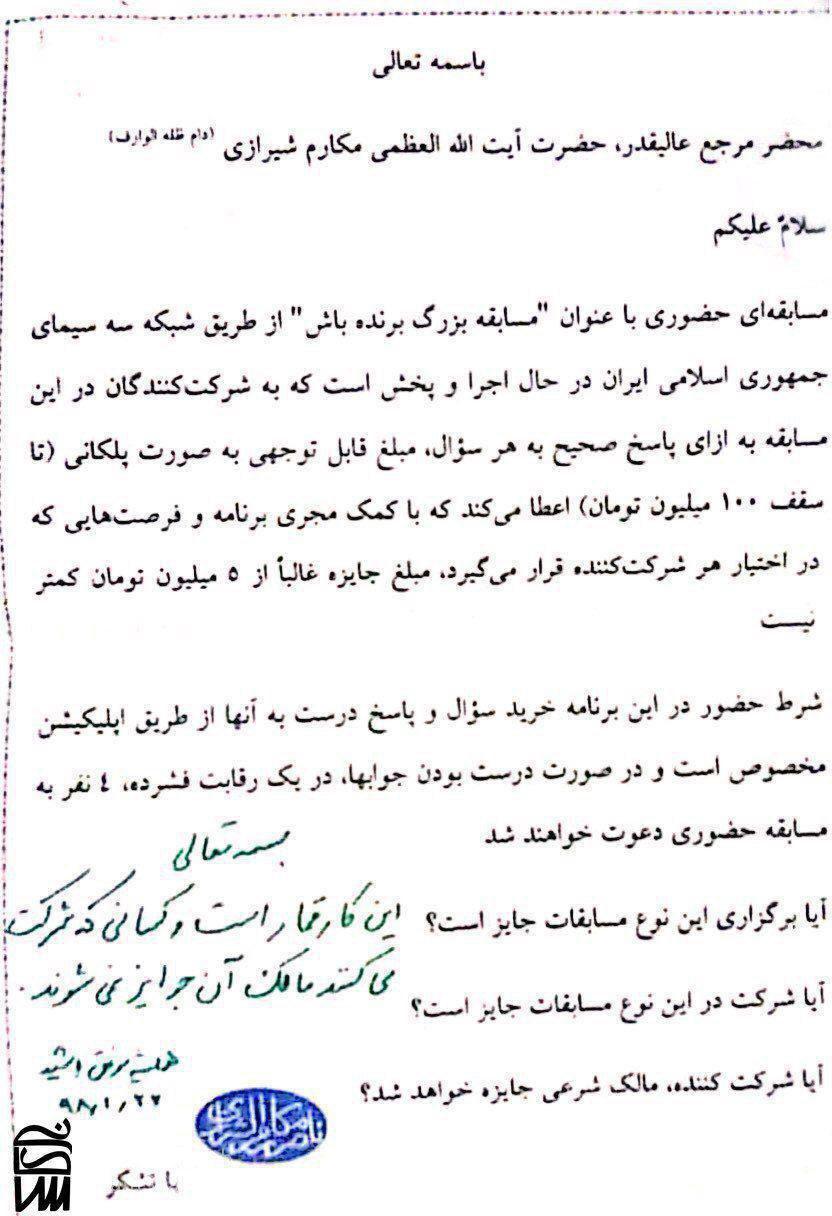 باسمه تعالی
محضر مرجع عالیقدر، حضرت آیت الله العظمی مکارم شیرازی (دام ظله الوارف)
سلامٌ علیکم
مسابقه‌ای حضوری با عنوان "مسابقه بزرگ برنده باش" از طریق شبکه سه سیمای
جمهوری اسلامی ایران در حال اجرا و پخش است که به شرکت‌کنندگان در این
مسابقه به ازای پاسخ صحیح به هر سؤال، مبلغ قابل توجهی به صورت پلکانی (تا
سقف ۱۰۰ میلیون تومان) اعطا می‌کند که با کمک مجری برنامه و فرصت‌هایی که
در اختیار هر شرکت‌کننده قرار می‌گیرد، مبلغ جایزه غالباً از ۵ میلیون تومان کمتر
نیست
شرط حضور در این برنامه خرید سؤال و پاسخ درست به آنها از طریق اپلیکیشن
مخصوص است و در صورت درست بودن جوابها، در یک رقابت فشرده، ٤ نفر به
مسابقه حضوری دعوت خواهند شد
بسمه تعالی
آیا برگزاری این نوع مسابقات جایز است؟
این کار قمار است و کسانی که شرکت
می کنند مالک آن جوایز نمی شوند.
آیا شرکت در این نوع مسابقات جایز است؟
آیا شرکت کننده، مالک شرعی جایزه خواهد شد؟
همیشه موفق باشید
۹۸/۱/۲۲
ناصر مکارم الشیرازی
با تشکر